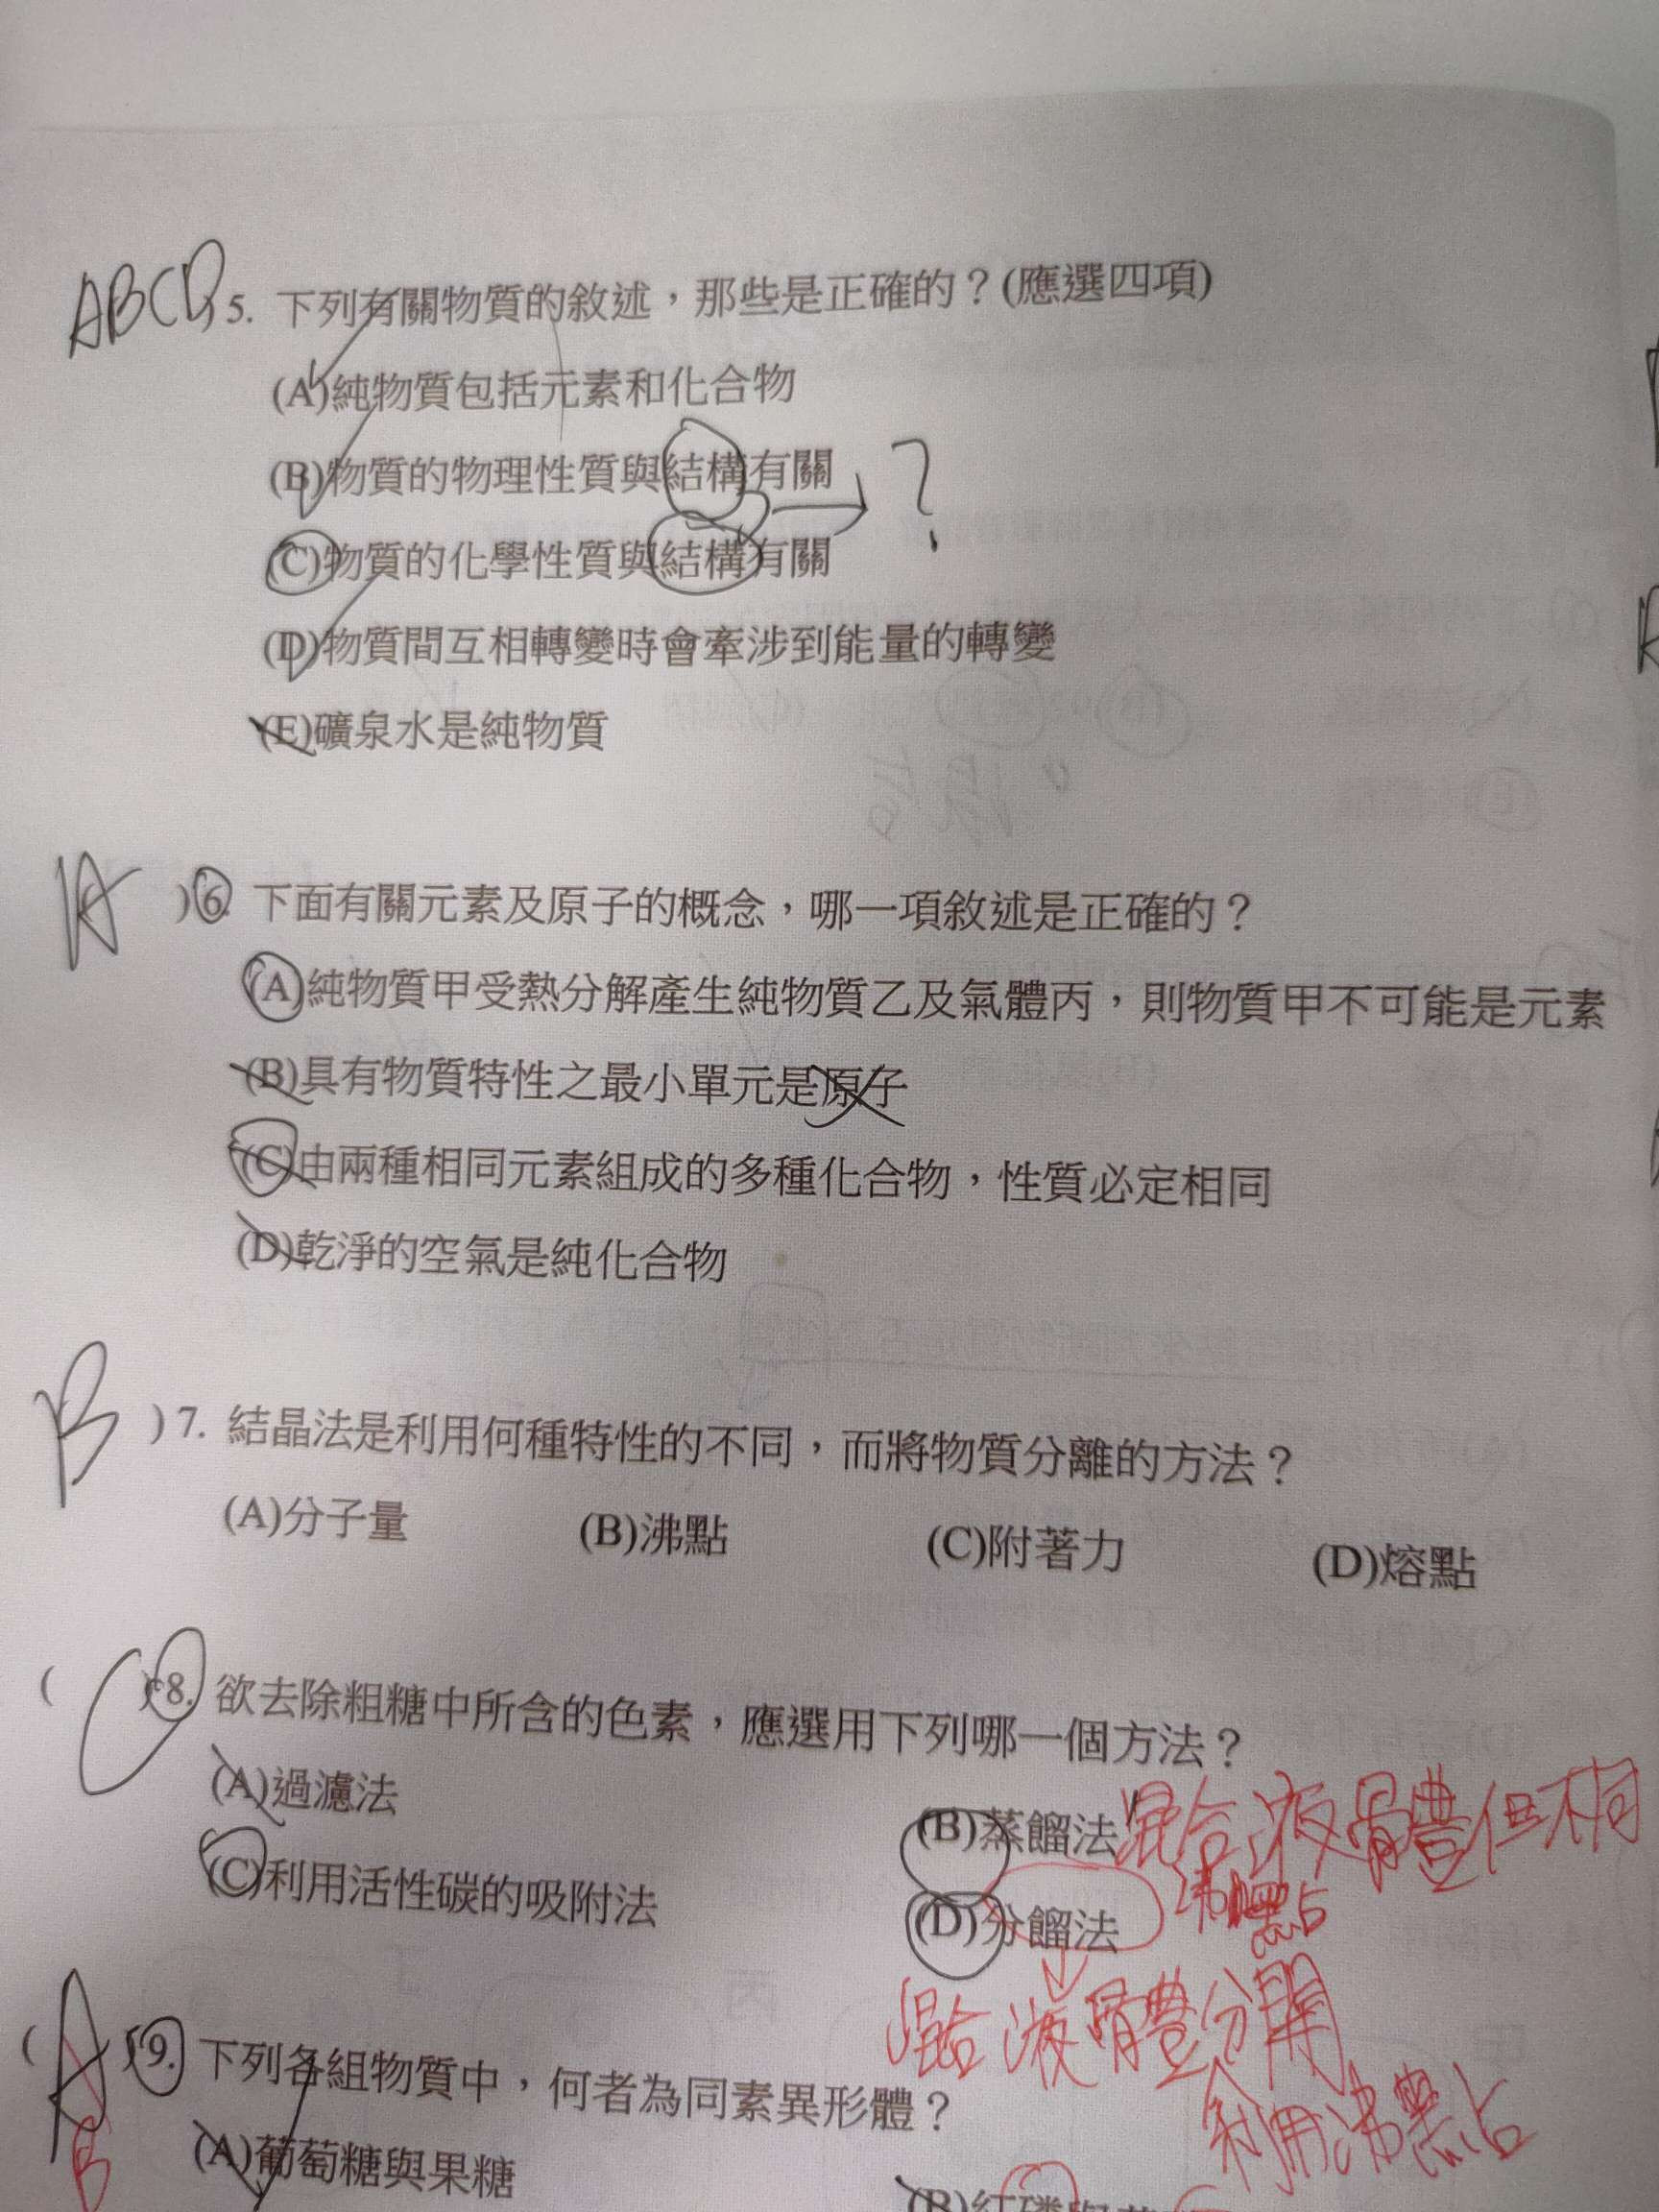 ABCD 5. 下列有關物質的敘述，那些是正確的？(應選四項)
(A)純物質包括元素和化合物
(B)物質的物理性質與結構有關
→ ?
(C)物質的化學性質與結構有關
(D)物質間互相轉變時會牽涉到能量的轉變
(E)礦泉水是純物質
A )6. 下面有關元素及原子的概念，哪一項敘述是正確的？
(A)純物質甲受熱分解產生純物質乙及氣體丙，則物質甲不可能是元素
(B)具有物質特性之最小單元是原子
(C)由兩種相同元素組成的多種化合物，性質必定相同
(D)乾淨的空氣是純化合物
B )7. 結晶法是利用何種特性的不同，而將物質分離的方法？
(A)分子量 (B)沸點 (C)附著力 (D)熔點
( C )8. 欲去除粗糖中所含的色素，應選用下列哪一個方法？
(A)過濾法 (B)蒸餾法 混合液體但不同
沸點
(C)利用活性碳的吸附法 (D)分餾法
混合液體分開
利用沸點
( A )9. 下列各組物質中，何者為同素異形體？
B
(A)葡萄糖與果糖 (B)紅磷與